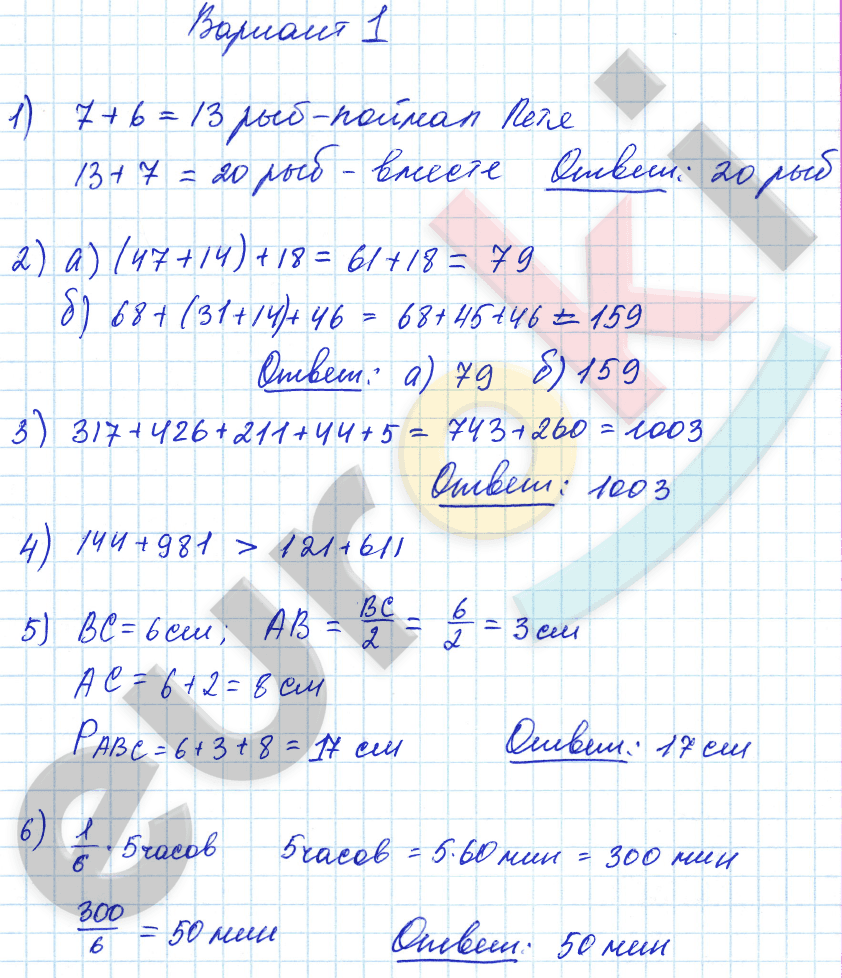 Вариант 1
1) 7 + 6 = 13 рыб - поймал Петя
13 + 7 = 20 рыб - вместе Ответ: 20 рыб
2) а) (47+14)+18 = 61+18 = 79
б) 68+(31+14)+46 = 68+45+46 = 159
Ответ: а) 79 б) 159
3) 317+426+211+44+5 = 743+260 = 1003
Ответ: 1003
4) 144+981 > 121+611
5) BC = 6 см; AB = BC/2 = 6/2 = 3 см
AC = 6+2 = 8 см
P ABC = 6+3+8 = 17 см Ответ: 17 см
6) 1/6 · 5 часов 5 часов = 5·60 мин = 300 мин
300/6 = 50 мин Ответ: 50 мин
euroki